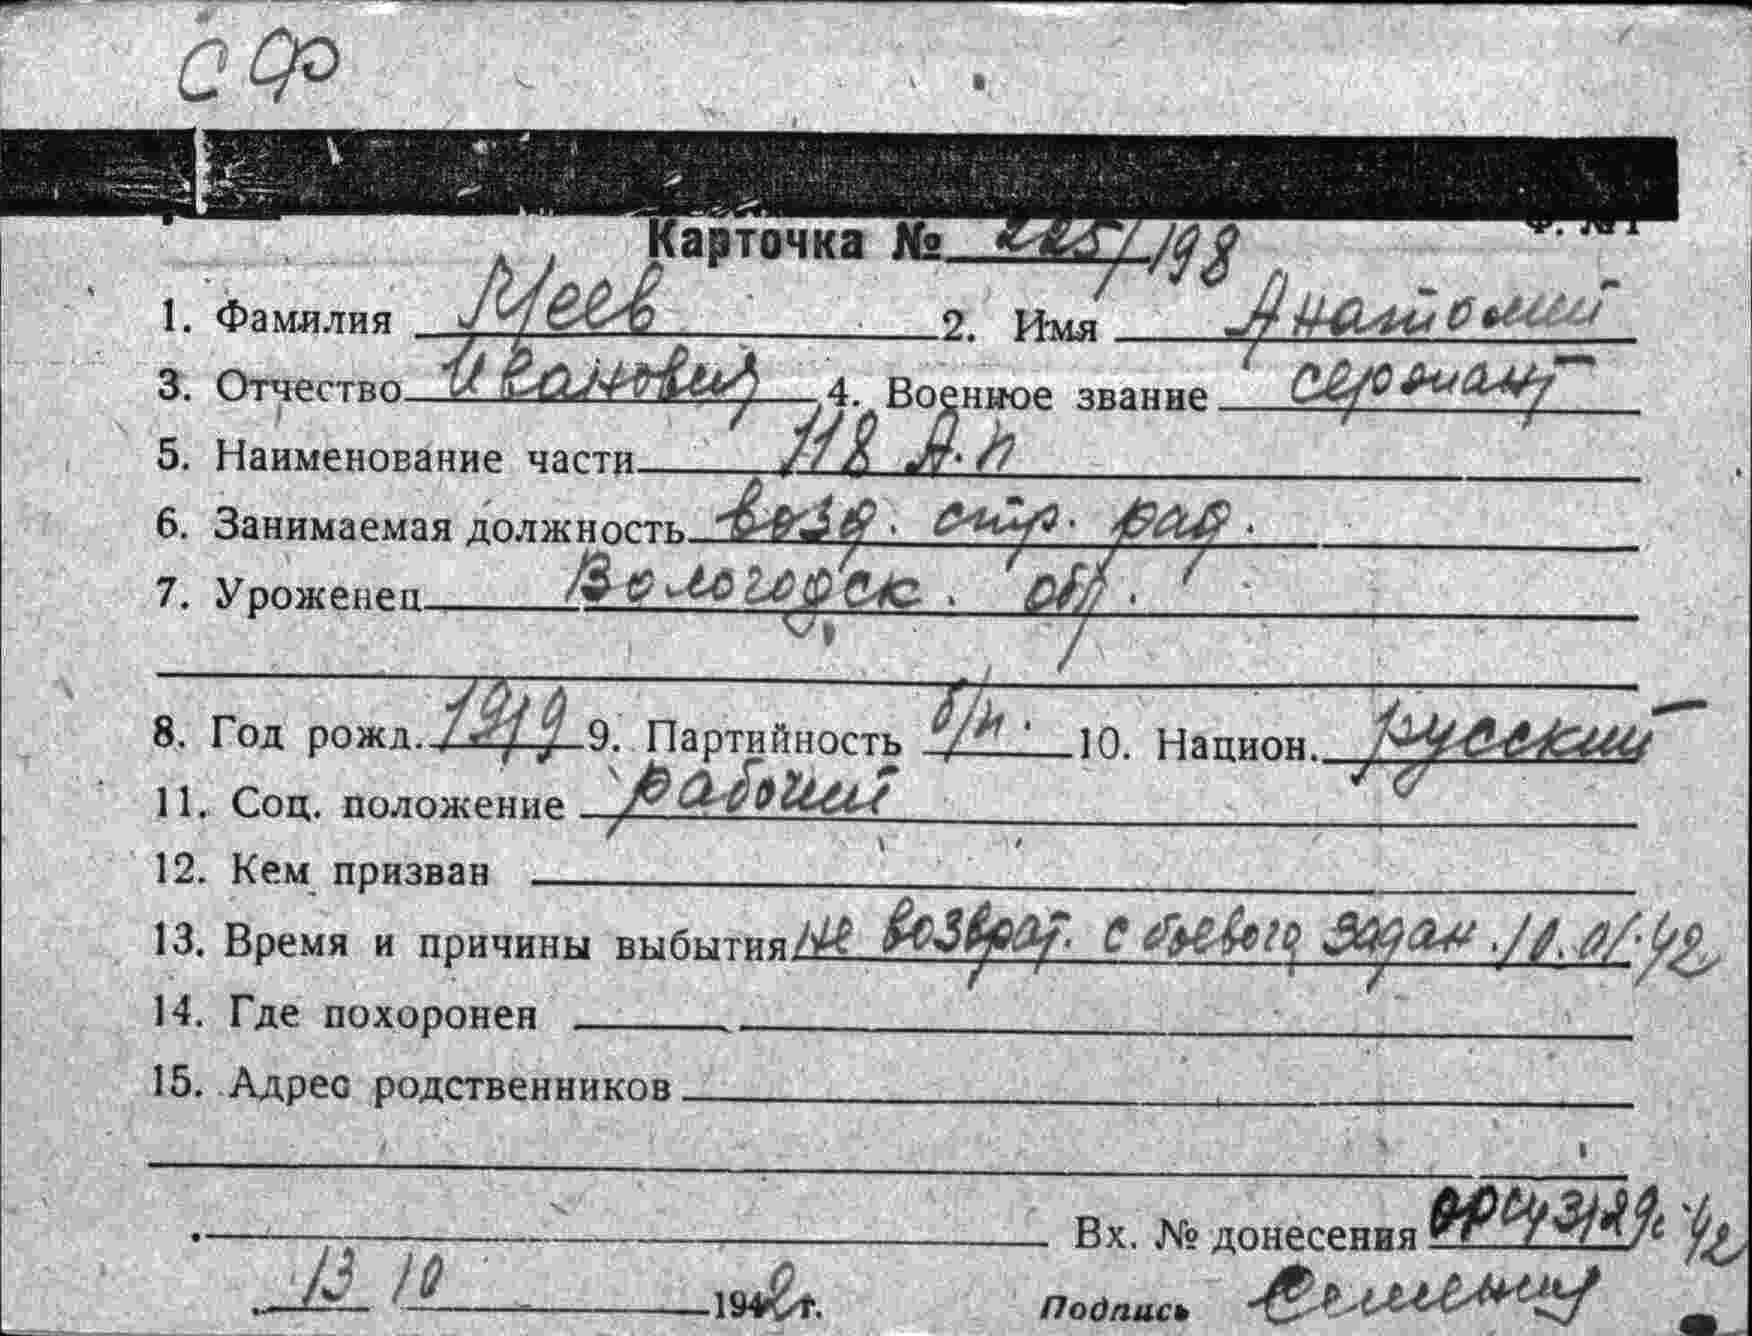 СФ
Ф. №1
Карточка № 225/198
1. Фамилия Меев 2. Имя Анатолий
3. Отчество Иванович 4. Военное звание сержант
5. Наименование части 118 А.П
6. Занимаемая должность возд. стр. рад.
7. Уроженец Вологодск. обл.
8. Год рожд. 1919 9. Партийность б/п. 10. Национ. русский
11. Соц. положение рабочий
12. Кем призван
13. Время и причины выбытия не возврат. с боевого задан. 10.01.42
14. Где похоронен
15. Адрес родственников
Вх. № донесения 42
13 10 1942 г. Подпись